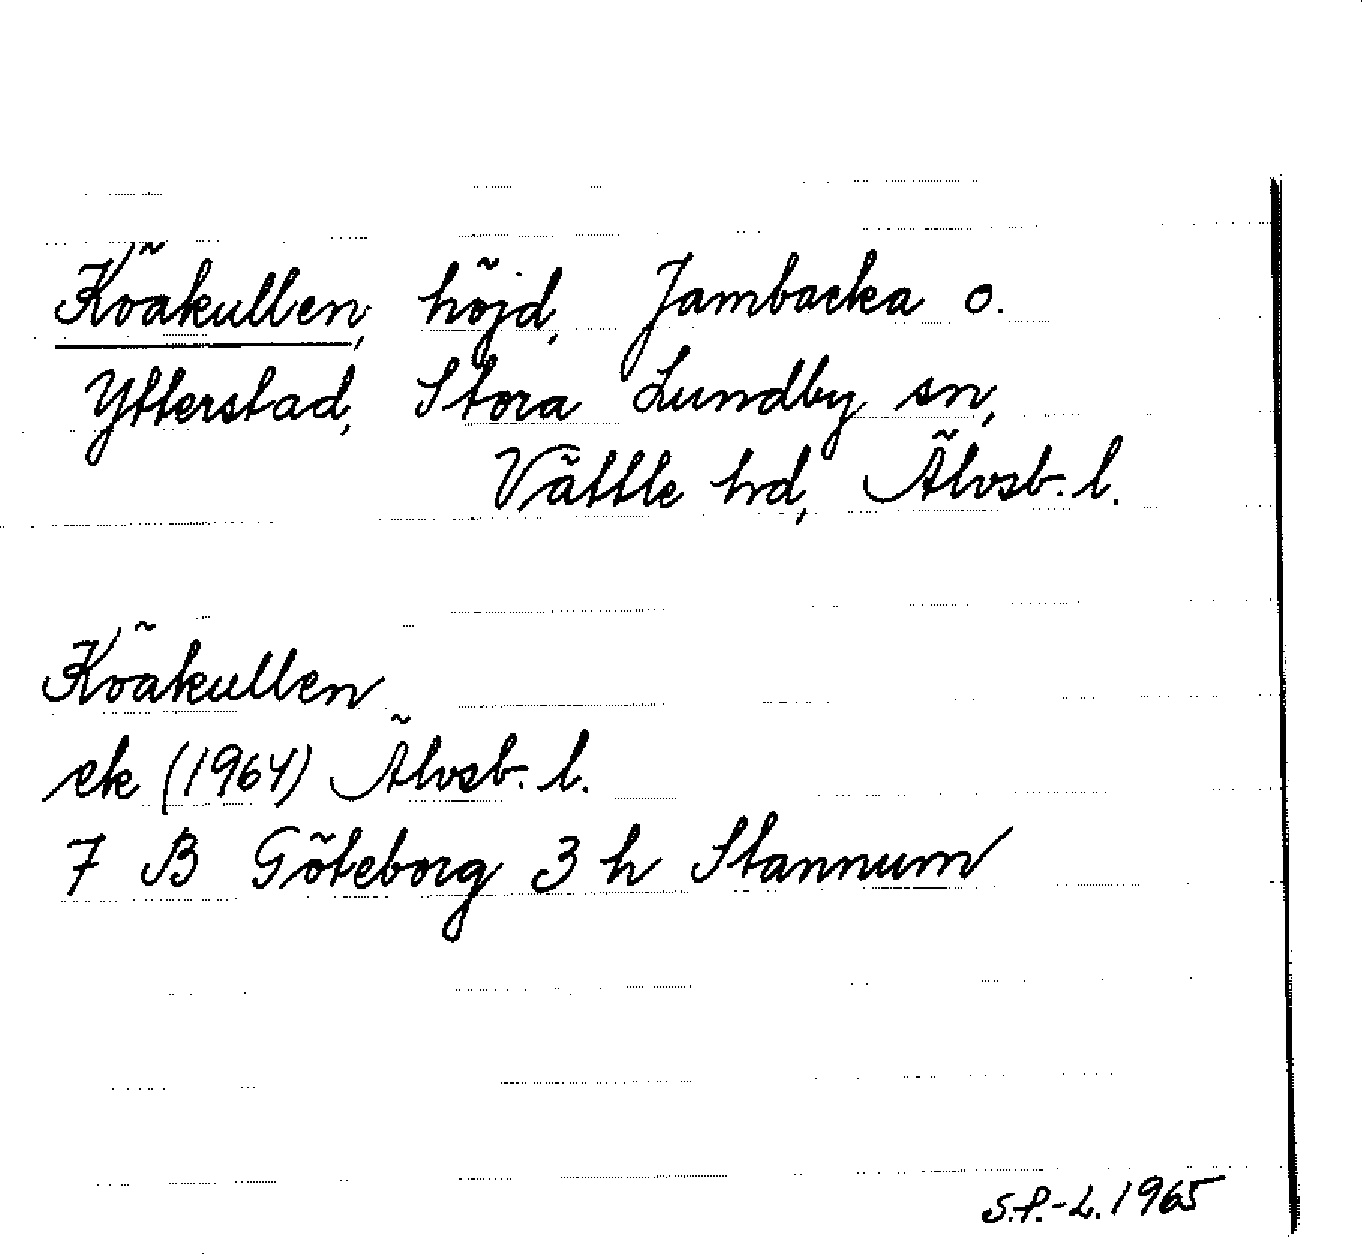 Kväkullen, höjd, Jambacka o.
Ytterstad, Stora Lundby sn,
Vättle hd, Älvsb. l.
Kväkullen
ek (1964) Älvsb. l.
7 B Göteborg 3 h Stannum
S.P.-L. 1965